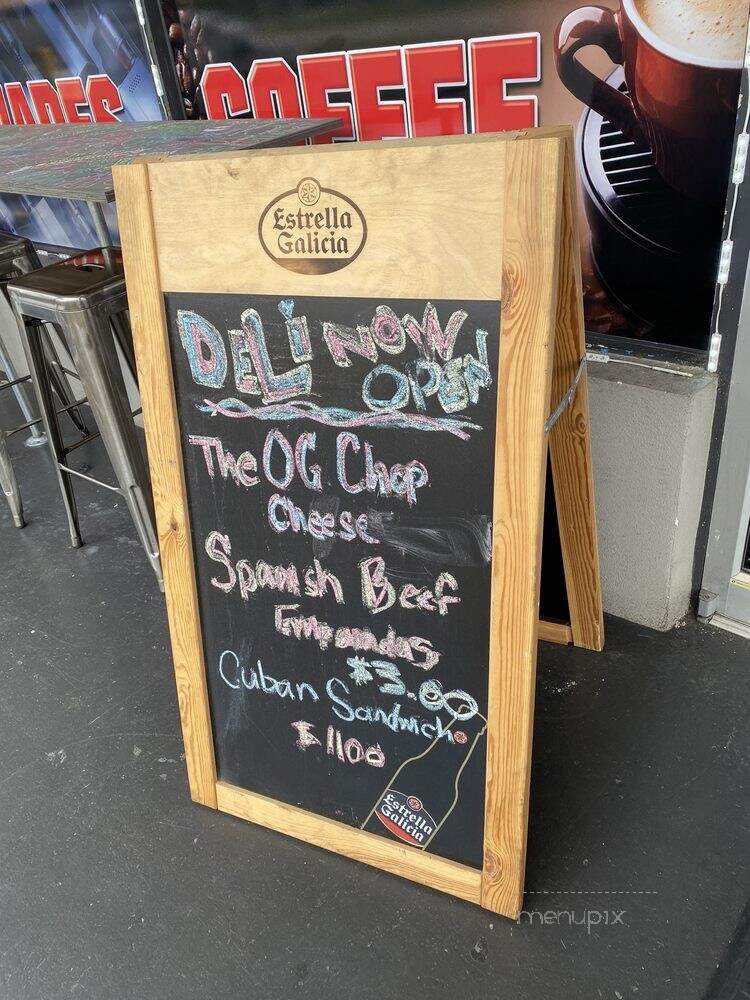 ADES
COFFEE
Estrella
Galicia
DELi NOW
OPEN
The OG Chop
Cheese
Spanish Beef
Empanadas
$3.00
Cuban Sandwich
$1100
Estrella
Galicia
menupix